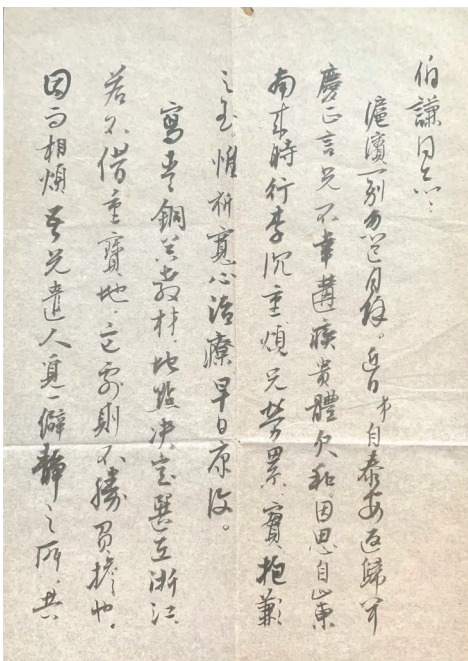 伯謙同志:
滬濱一别忽逾月餘。近日才自泰安返歸聞
慶正言兄不幸遘疾貴體欠和。因思自山東
南来時行李沉重煩兄勞累,實抱歉
之至,惟祈寬心治療,早日康復。
寫青銅器教材,地點决定選在浙江
若不借重寶地,它處則不勝負擔也。
因而相煩 吾兄遣人覓一僻静之所,共